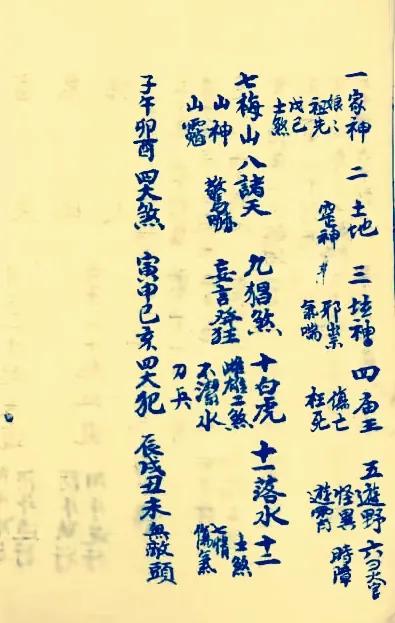 一家神 二土地 三坛神 四庙王 五遊野 六天官
娘娘
祖先
戊己
土煞
邪祟
氣喘
傷亡
枉死
怪異
時障
七梅山 八諸天 九猖煞 十白虎 十一落水 十二
山神
山霄
驚嚇
妄言發狂
雌雄二煞
不潔水
刀兵
土煞
七情
傷氣
子午卯酉四大煞 寅申巳亥四大犯 辰戌丑未無敵頭